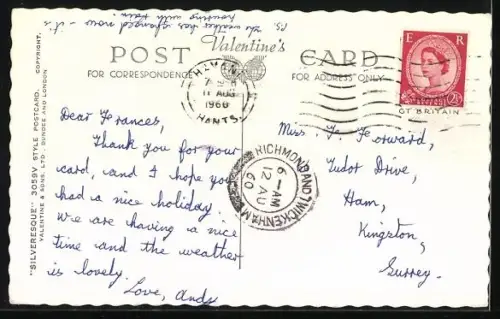 PS. The weather has changed now - it's
pouring with rain!
POST
Valentine's
CARD
FOR CORRESPONDENCE
FOR ADDRESS ONLY
E R
2½D
GT BRITAIN
11 AUG
1960
HANTS
"SILVERESQUE" 3059V STYLE POSTCARD.
COPYRIGHT.
VALENTINE & SONS, LTD. DUNDEE AND LONDON
Dear Frances,
Thank you for your
card, and I hope you
had a nice holiday.
We are having a nice
time and the weather
is lovely.
Love, Andy
RICHMOND AND TWICKENHAM
6 - AM
12 AU
60
Miss. F. Forward,
Tudor Drive,
Ham,
Kingston,
Surrey.